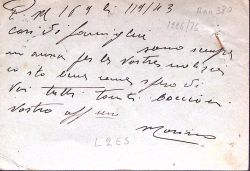 P M 167 li 11/9/43
Cari di famiglia
sono sempre
in ansia per le vostre notizie
io sto bene come spero di
voi tutti tanti baccioni
vostro aff
Mariano
L2ES